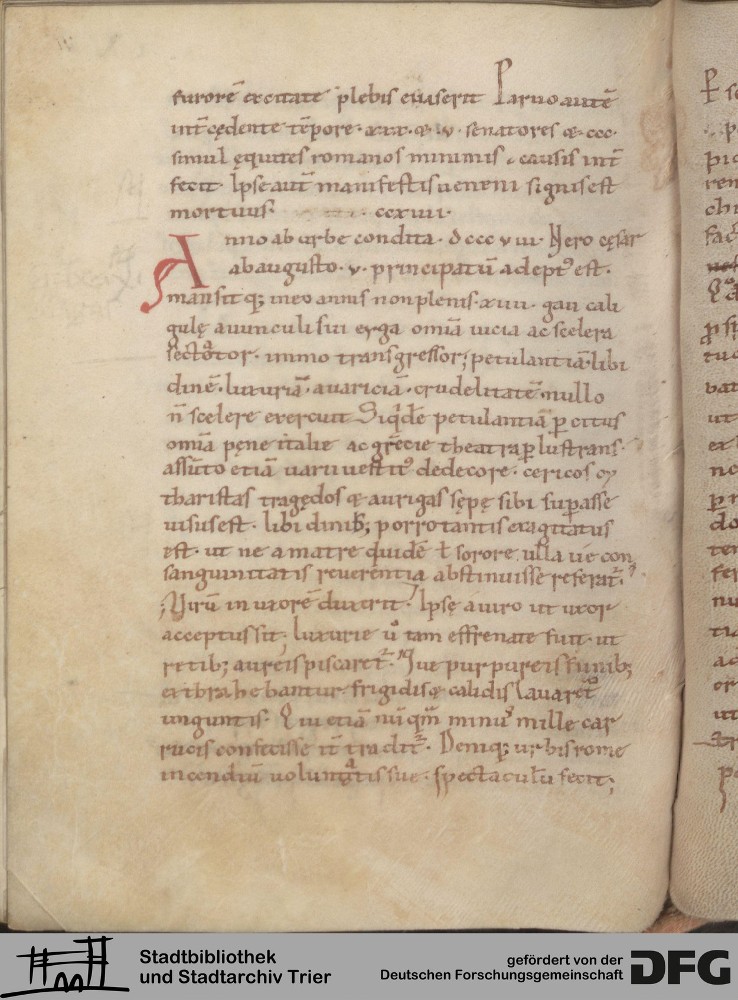 furorē excitatę plebis euaserit Paruo autē
int̄ cędente tēpore · xxx · & · v · senatores & · ccc ·
simul ęquites romanos minimis causis int̄
fecit · Ipse aut̄ manifestis ueneni signis est
mortuus · ccxiiii ·
Anno ab urbe condita · dccc viii · Nero cęsar
ab augusto · v · principatū adept᾿ est ·
mansitq; in eo annis non plenis · xiiii · gaii cali
gulę auunculi sui erga omīa uicia ac scelera
sectator · immo transgressor; petulantiā · libi
dinē · luxuriā · auariciā · crudelitatē nullo
n̄ scelere exercuit Siq̇dē petulantia ꝑcitus
omīa pęne italię ac gręcię theatra ꝑlustrans ·
assūto etiā uarii uestit᾿ dedecore · cericos cy
tharistas tragędos & aurigas sępę sibi suꝑasse
uisus est · libidinib; porro tantis exagitatus
est · ut ne a matre quidē ł sorore ulla
sanguinitatis reuerentia abstinuisse referat᷑ ·
Virū in uxorē duxerit Ipse a uiro ut uxor
acceptus sit; luxurię ů tam effrenatę fuit · ut
retib; aureis piscaret᷑ · que purpureis funib;
extrahebantur frigidis & calidis lauaret᷑
unguentis · Qui etiā nūq̄m minus mille car
rucis confecisse it̄ tradit᷑ · Deniq; urbis romę
incendiū uoluntatis suę · spectaculū fecit;
Stadtbibliothek
und Stadtarchiv Trier
gefördert von der
Deutschen Forschungsgemeinschaft
DFG